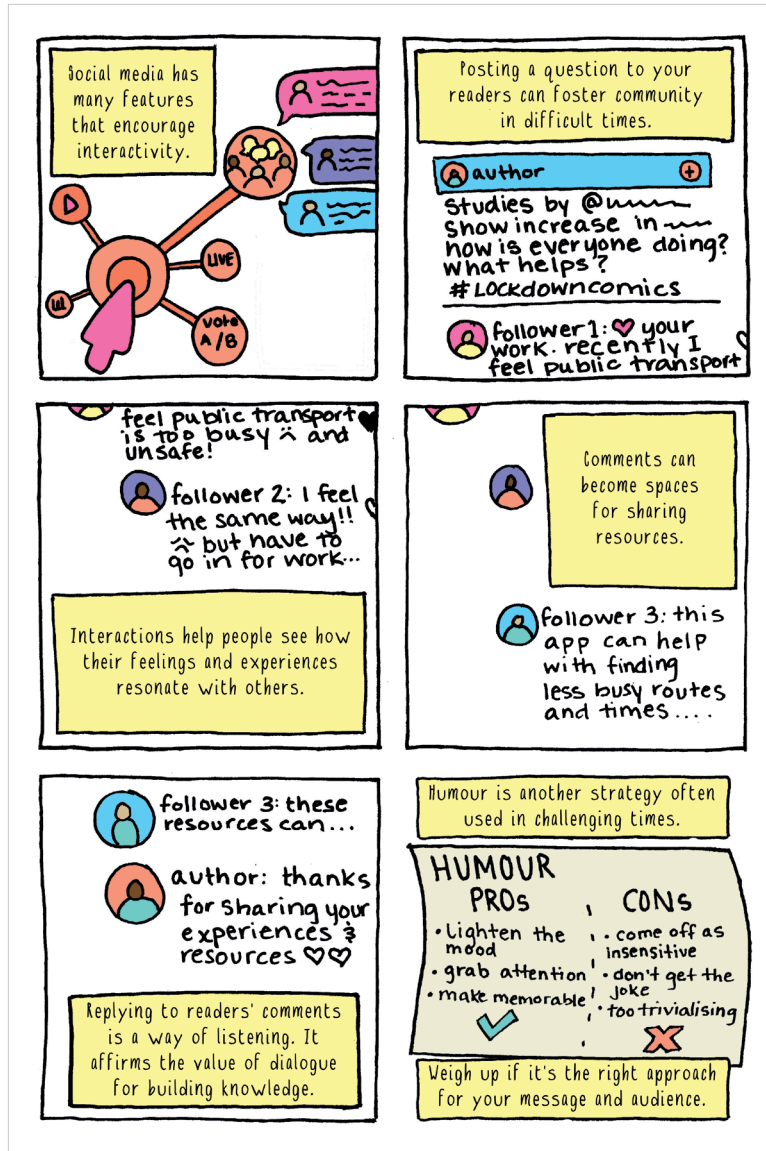 Social media has
many features
that encourage
interactivity.
LIVE
Vote
A/B
Posting a question to your
readers can foster community
in difficult times.
author
+
studies by @
show increase in
how is everyone doing?
what helps?
#LOCKdowncomics
follower 1: ♡ your
work. recently I
feel public transport
feel public transport
is too busy and
unsafe!
follower 2: I feel
the same way!!
but have to
go in for work...
Interactions help people see how
their feelings and experiences
resonate with others.
Comments can
become spaces
for sharing
resources.
follower 3: this
app can help
with finding
less busy routes
and times....
follower 3: these
resources can...
author: thanks
for sharing your
experiences &
resources ♡♡
Replying to readers' comments
is a way of listening. It
affirms the value of dialogue
for building knowledge.
Humour is another strategy often
used in challenging times.
HUMOUR
PROS
• Lighten the
mood
• grab attention
• make memorable
CONS
• come off as
insensitive
• don't get the
joke
• too trivialising
Weigh up if it's the right approach
for your message and audience.